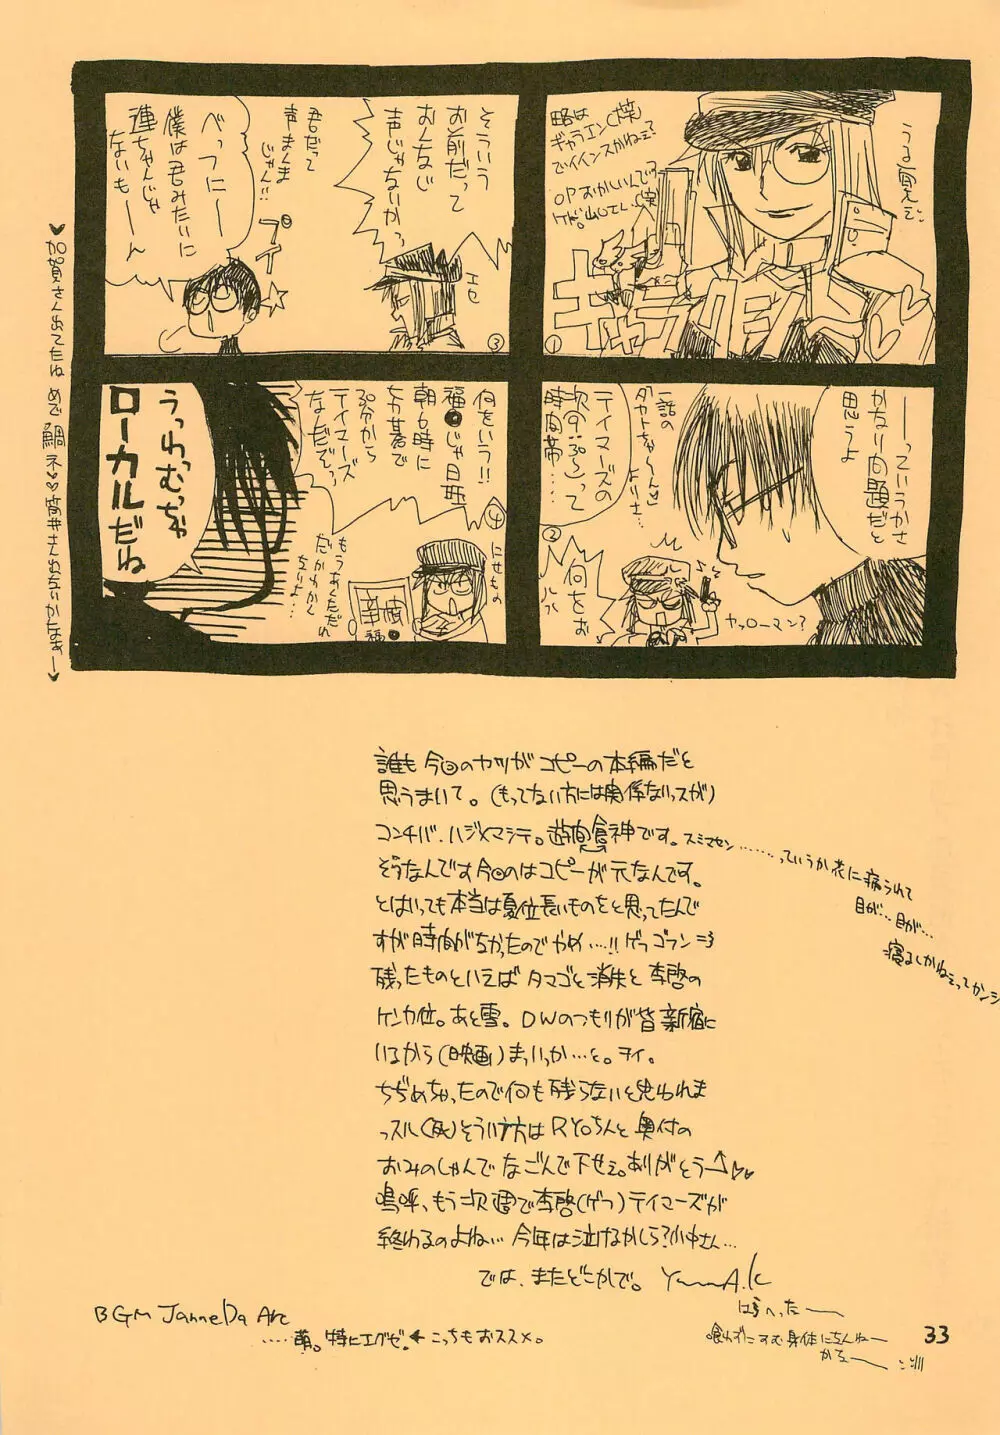 うる覚えで。
略は
ギャラエン(笑)
でイインスかねェ?
OPおかしいんで
キャラ
①
ーっていうかさ
かなり問題だと
思うよ
一話の
「タカトちゃ〜ん♡」
よりさ…
テイマーズの
次の
時間帯…
②
何をお
ヤッローマン?
そういう
お前だって
おんなじ
声じゃないかっ
エセ
君だって
声まんま
じゃん!!
プイ
べっつにー
僕は君みたいに
連ちゃんじゃ
ないもーん
③
④
にせもの
何をいう!!
福●じゃ日曜
朝6時に
30分から
テイマーズ
なんだぞっ
幸
福●
もうあんただれ
だかわかん
ないよ…
うっわむっちゃ
ローカルだね
♥加賀さん出てたね めで鯛ネ♡♡
誰も今回のヤツがコピーの本編だと
思うまいて。(もってない方には関係ないっスが)
コンチハ、ハジメマシテ。
スミマセン……っていうか花に病られて
目が…目が…
寝るしかねェってカンジ
そうなんです今回のはコピーが元なんです。
とはいっても本当は夏位長いものをと思ってたんで
すが時間がなかったのでやめ…!!ゲフゴフン=3
残ったものといえばタマゴと消失と李啓の
ケンカ位。あと雪。DWのつもりが皆新宿に
いるから(映画)まっいっか…と。ヲイ。
ちぢめちゃったので何も残らないと思われま
っスル(死)そういう方はRYOちんと奥付の
おみのしゃんでなごんで下せェ。ありがとう↑♡♡
嗚呼、もう次週で李啓(ゲフ)テイマーズが
終わるのよね… 今年は泣けるかしら?小中さん…
では、またどこかで。
はらへったー
喰わずにすむ身体になんねー
かなー
BGM Janne Da Arc
……萌。特にエグゼ!←こっちもおススメ。
33